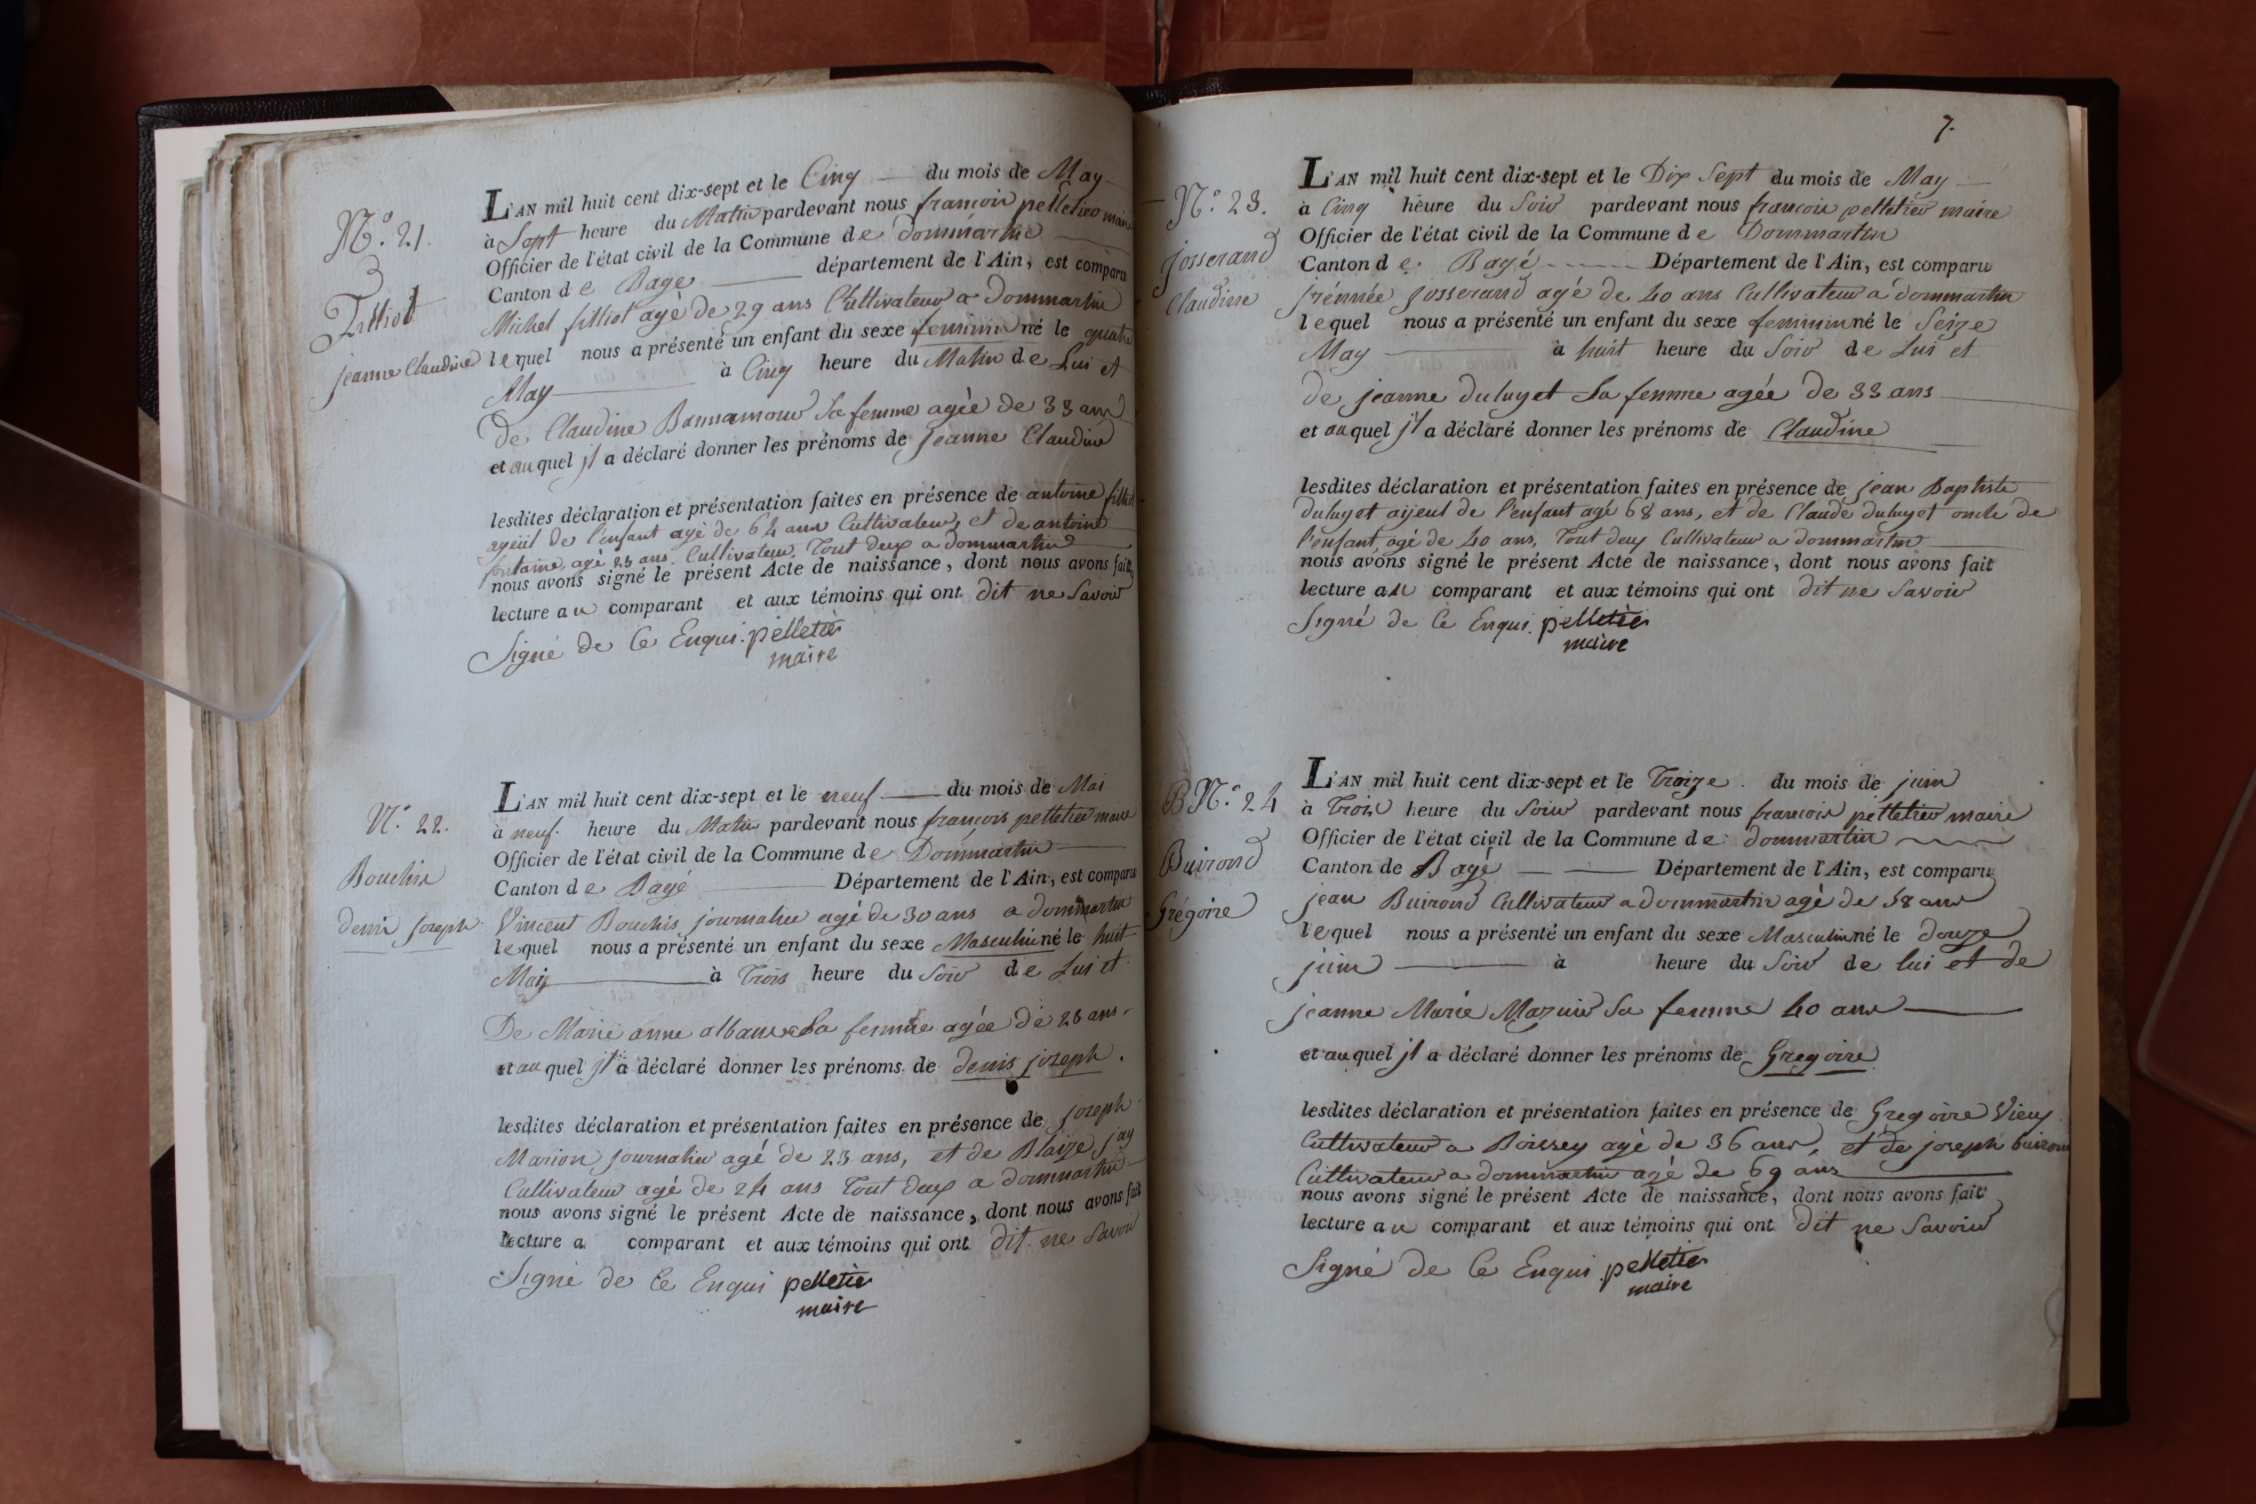 N.° 21.
Filliot
jeanne Claudine
L'AN mil huit cent dix-sept et le Cinq du mois de May
à Sept heure du Matin pardevant nous francois pelletier maire
Officier de l'état civil de la Commune de dommartin
Canton de Bage département de l'Ain, est comparu
Michel filliot agè de 29 ans Cultivateur a dommartin
lequel nous a présenté un enfant du sexe feminin né le quatre
May à Cinq heure du Matin de Lui et
de Claudine Bannamour Sa femme agèe de 33 ans
et auquel jl a déclaré donner les prénoms de jeanne Claudine
lesdites déclaration et présentation faites en présence de antoine filliot
ayeül de l'enfant agè de 64 ans Cultivateur, et de antoine
fontaine, agè 23 ans. Cultivateur. Tout deux a dommartin
nous avons signé le présent Acte de naissance, dont nous avons fait
lecture au comparant et aux témoins qui ont dit ne Savoir
Signé de Ce Enqui. pelletier
maire
N.° 22.
Bouchis
denis joseph
L'AN mil huit cent dix-sept et le neuf du mois de Mai
à neuf heure du Matin pardevant nous francois pelletier maire
Officier de l'état civil de la Commune de Dommartin
Canton de Bagé Département de l'Ain, est comparu
Vincent Bouchis journalier agè de 30 ans a dommartin
lequel nous a présenté un enfant du sexe Masculin né le huit
May à Trois heure du Soir de Lui et
De Marie anne albane Sa femme agée de 28 ans.
et auquel jl a déclaré donner les prénoms de denis joseph.
lesdites déclaration et présentation faites en présence de joseph
Marion journalier agé de 23 ans, et de Blaize jay
Cultivateur agé de 24 ans Tout deux a dommartin
nous avons signé le présent Acte de naissance, dont nous avons fait
lecture a comparant et aux témoins qui ont dit ne Savoir
Signé de Ce Enqui pelletier
maire
7.
N.° 23.
josserand
Claudine
L'AN mil huit cent dix-sept et le Dix Sept du mois de May
à Cinq heure du Soir pardevant nous francois pelletier maire
Officier de l'état civil de la Commune de Dommartin
Canton de Bagé Département de l'Ain, est comparu
josserand agé de 40 ans Cultivateur a dommartin
lequel nous a présenté un enfant du sexe feminin né le Seize
May à huit heure du Soir de Lui et
de jeanne duluyet Sa femme agée de 33 ans
et auquel jl a déclaré donner les prénoms de Claudine
lesdites déclaration et présentation faites en présence de jean Baptiste
duluyet ayeul de l'enfant agé 68 ans, et de Claude duluyet oncle de
l'enfant, agé de 40 ans, Tout deux Cultivateur a dommartin
nous avons signé le présent Acte de naissance, dont nous avons fait
lecture au comparant et aux témoins qui ont dit ne Savoir
Signé de Ce Enqui. pelletier
maire
B N.° 24
Buirond
Grégoire
L'AN mil huit cent dix-sept et le Treize du mois de juin
à Trois heure du Soir pardevant nous francois pelletier maire
Officier de l'état civil de la Commune de dommartin
Canton de Bagé Département de l'Ain, est comparu
jean Buirond Cultivateur a dommartin agè de 38 ans
lequel nous a présenté un enfant du sexe Masculin né le douze
juin à heure du Soir de lui et de
jeanne Marie Mazuir Sa femme 40 ans
et auquel jl a déclaré donner les prénoms de Gregoire
lesdites déclaration et présentation faites en présence de Gregoire Vieux
Cultivateur a Boissey agè de 36 ans, et de joseph buirond
Cultivateur a dommartin agé de 69 ans
nous avons signé le présent Acte de naissance, dont nous avons fait
lecture au comparant et aux témoins qui ont dit ne Savoir
Signé de Ce Enqui pelletier
maire